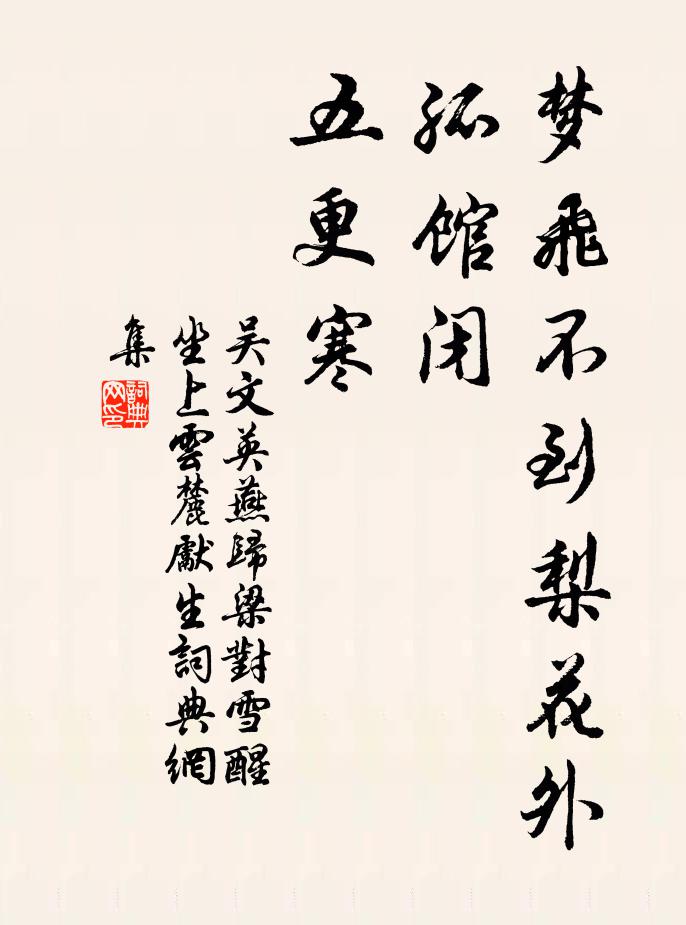 梦飛不到梨花外
孤館闭
五更寒
吴文英燕歸梁對雪醒
坐上雲麓獻生詞典網
集
詞典
网印